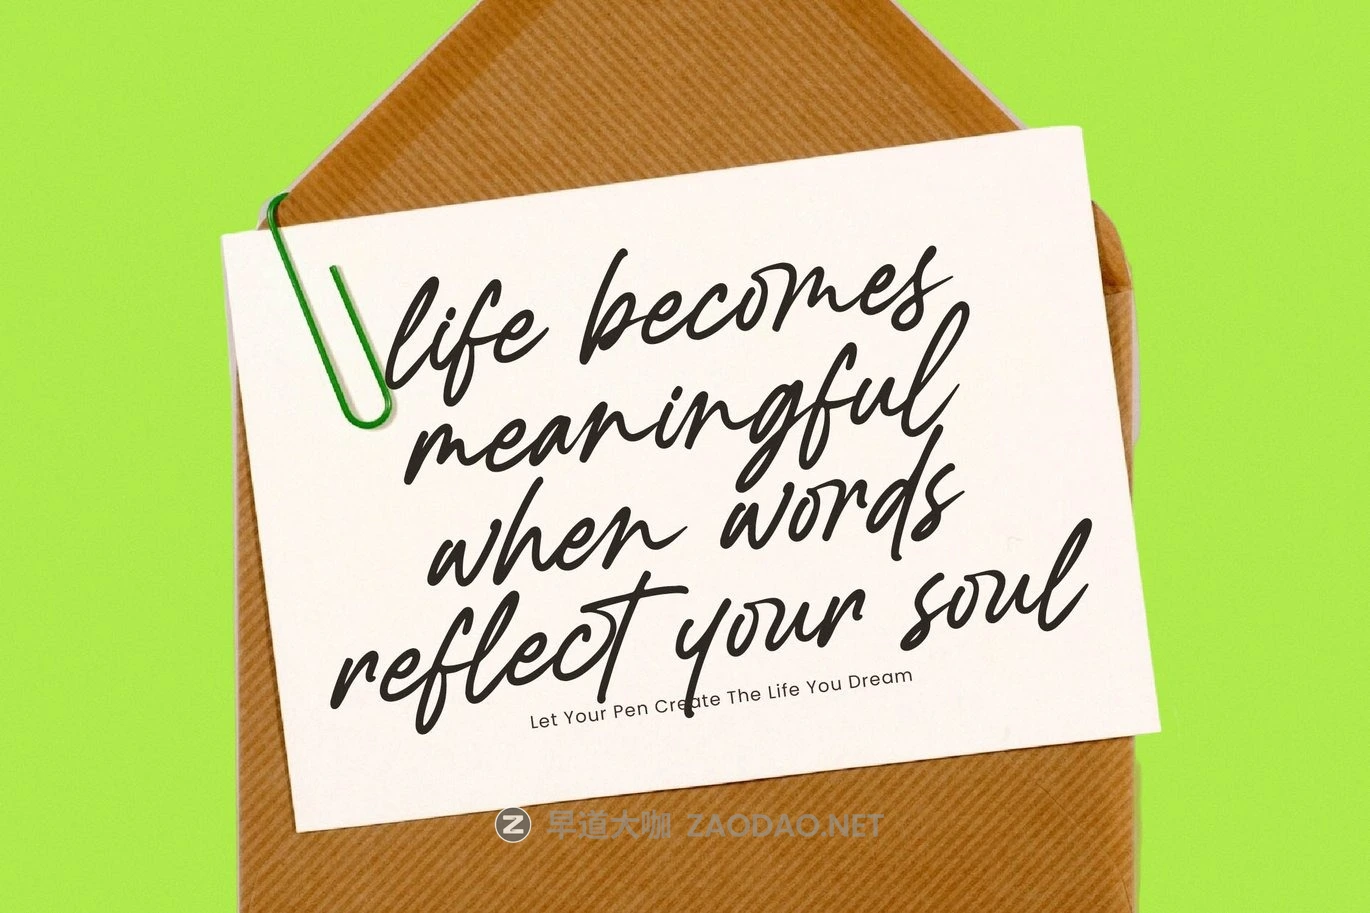 life becomes
meaningful
when words
reflect your soul
Let Your Pen Create The Life You Dream
早道大咖 ZAODAO.NET